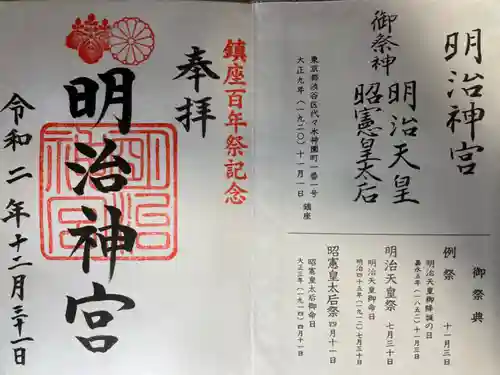 明治神宮
御祭神
明治天皇
昭憲皇太后
東京都渋谷区代々木神園町一番一号
大正九年（一九二〇）十一月一日 鎮座
御祭典
例祭 十一月三日
明治天皇御降誕の日
嘉永五年（一八五二）十一月三日
明治天皇祭 七月三十日
明治天皇御命日
明治四十五年（一九一二）七月三十日
昭憲皇太后祭 四月十一日
昭憲皇太后御命日
大正三年（一九一四）四月十一日
鎮座百年祭記念
奉拝
明治神宮
明治神宮
令和二年十二月三十一日